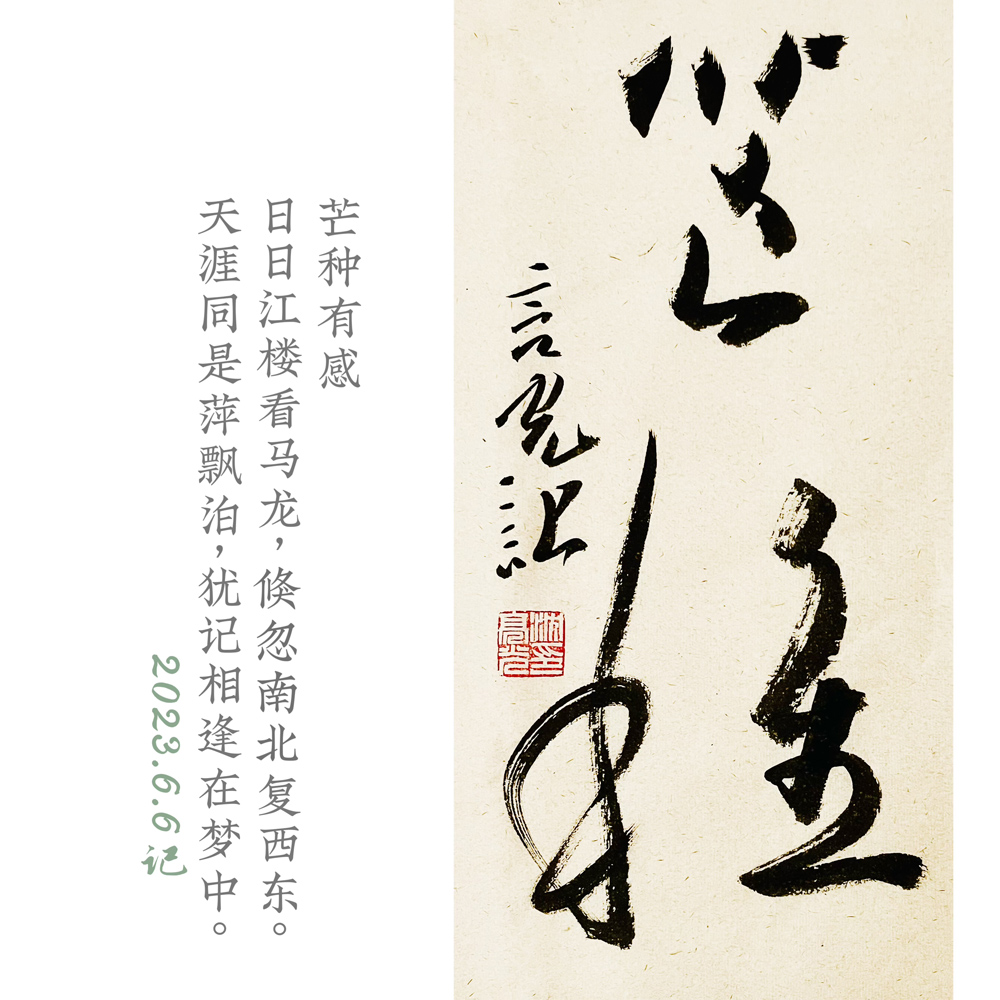 芒種
言亮记
芒种有感
日日江楼看马龙，倏忽南北复西东。
天涯同是萍飘泊，犹记相逢在梦中。
2023.6.6记